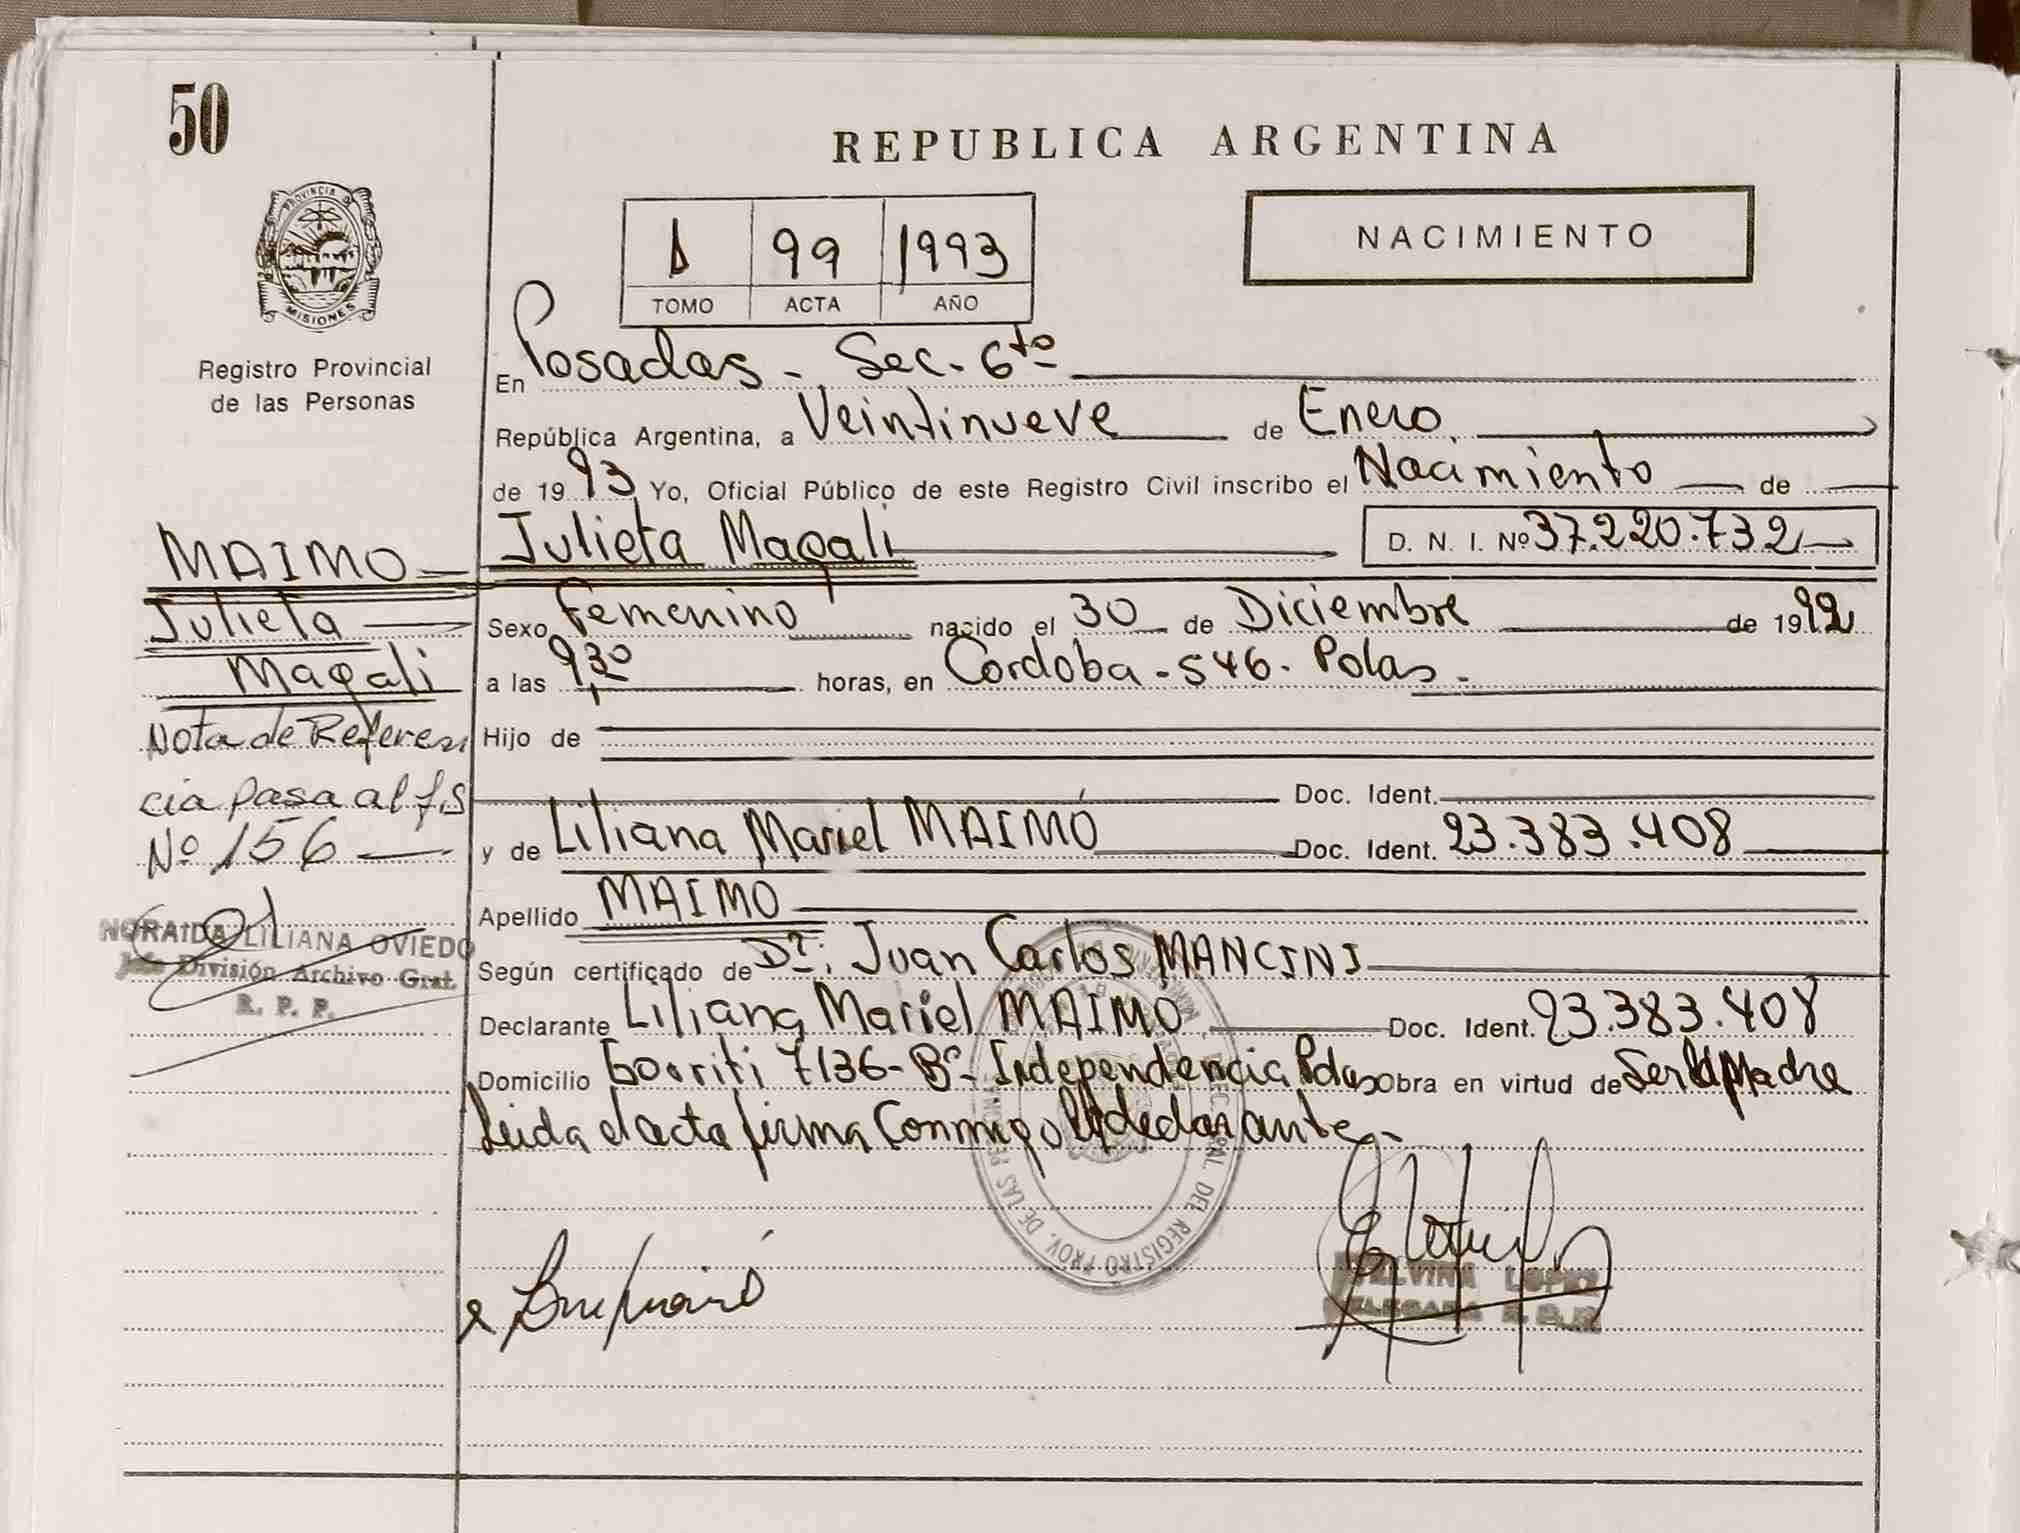 50
REPUBLICA ARGENTINA
PROVINCIA DE
MISIONES
Registro Provincial
de las Personas
1 99 1993
TOMO ACTA AÑO
NACIMIENTO
En Posadas - Sec - 6to
República Argentina, a Veintinueve de Enero
de 1993 Yo, Oficial Público de este Registro Civil inscribo el Nacimiento de
Julieta Magali D. N. I. Nº 37.220.732
Sexo Femenino nacido el 30 de Diciembre de 1992
a las 9,30 horas, en Cordoba - 546 - Pdas.
Hijo de
Doc. Ident.
y de Liliana Mariel MAIMÓ Doc. Ident. 23.383.408
Apellido MAIMO
Según certificado de Dr. Juan Carlos MANCINI
Declarante Liliana Mariel MAIMÓ Doc. Ident. 23.383.408
Domicilio Gorriti 7136 - Bº - Independencia Pdas Obra en virtud de Ser la Madre
Leida el acta firma Conmigo la declarante.-
MAIMO
Julieta
Magali
Nota de Referen
cia pasa al fs
Nº 156
NORAIDA LILIANA OVIEDO
Jefe División Archivo Gral.
R. P. P.
GRAL. DEL REGISTRO PROV. DE LAS
LOPEZ